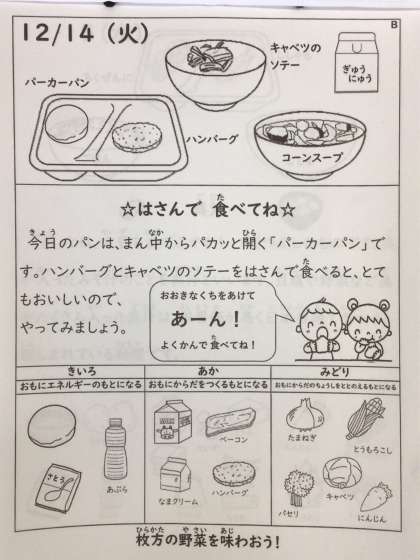 12/14（火）
B
キャベツの
ソテー
ぎゅう
にゅう
パーカーパン
ハンバーグ
コーンスープ
☆はさんで 食べてね☆
今日のパンは、まん中からパカッと開く「パーカーパン」で
す。ハンバーグとキャベツのソテーをはさんで食べると、とて
もおいしいので、
やってみましょう。
おおきなくちをあけて
あーん！
よくかんで食べてね！
きいろ
あか
みどり
おもにエネルギーのもとになる
おもにからだをつくるもとになる
おもにからだのちょうしをととのえるもとになる
さとう
あぶら
ベーコン
なまクリーム
ハンバーグ
たまねぎ
とうもろこし
パセリ
キャベツ
にんじん
枚方の野菜を味わおう！